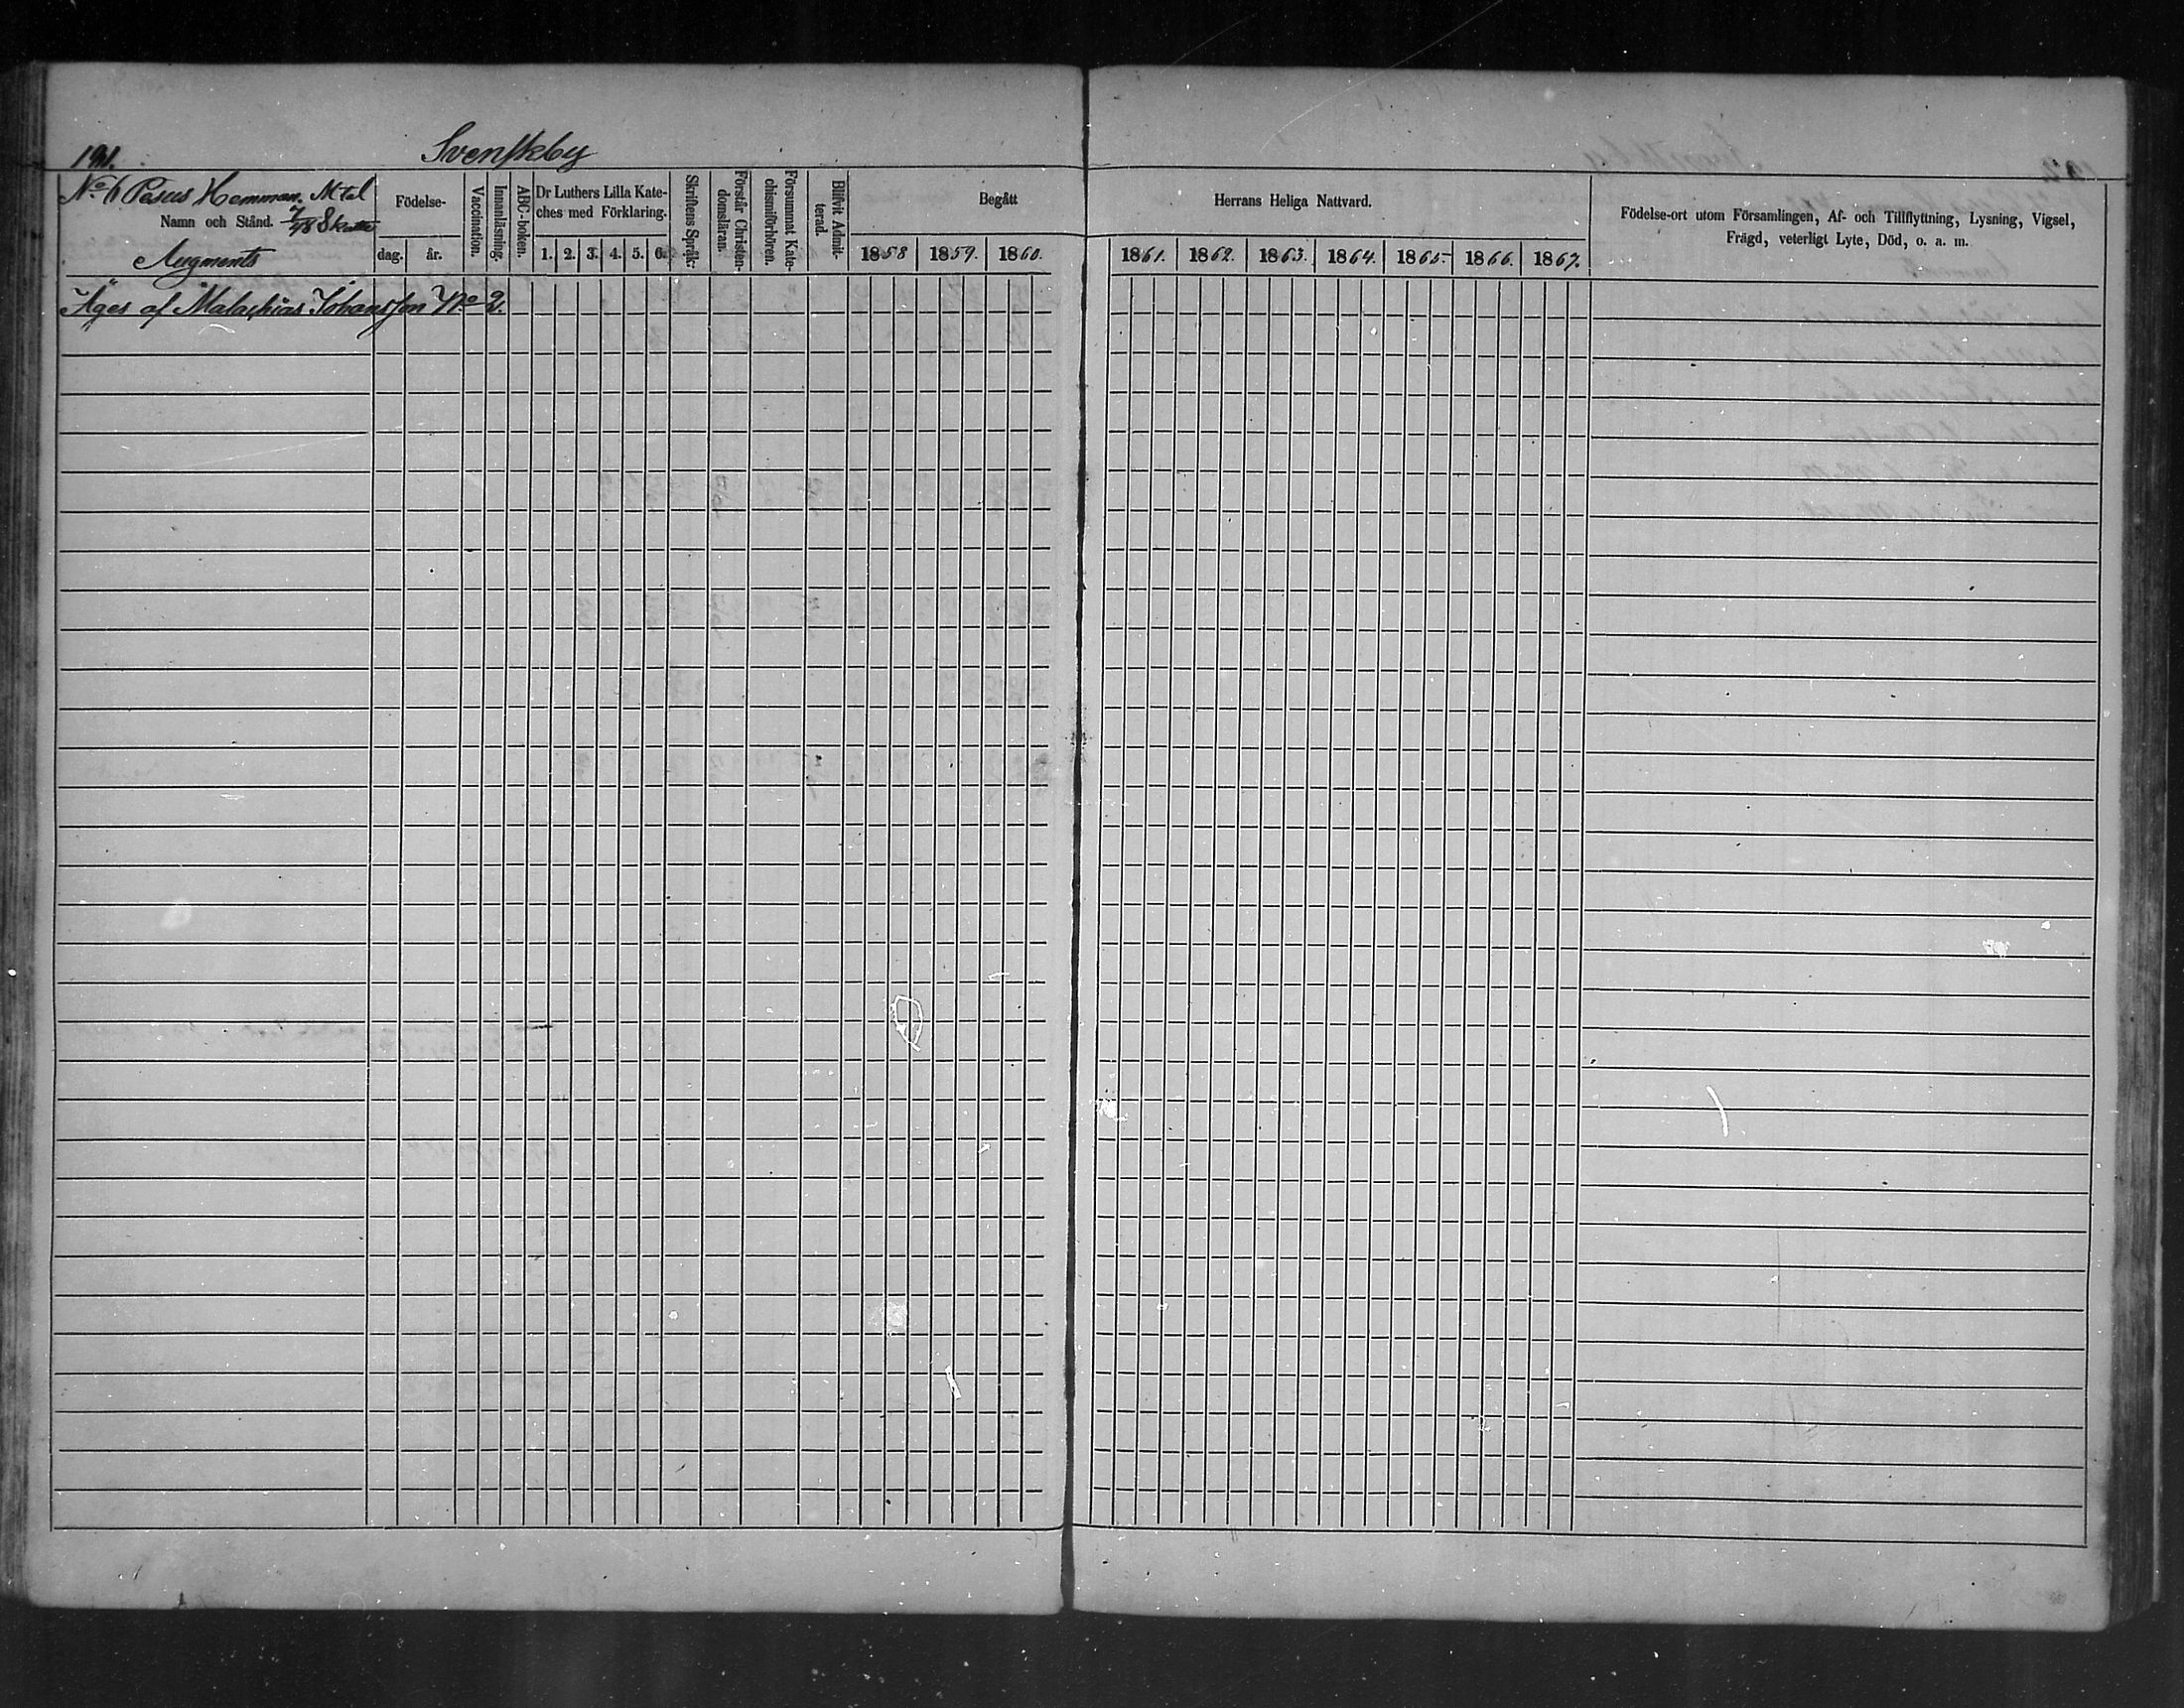 191.
Svenskby
No 6 Pesus Hemman. Mtal
Namn och Stånd. 7/48 Skatte
Augments
Födelse-
dag. år.
Vaccination.
Innanläsning.
ABC-boken.
Dr Luthers Lilla Kate-
ches med Förklaring.
1. 2. 3. 4. 5. 6.
Skriftens Språk.
Förstår Christen-
domsläran.
Försummat Kate-
chismiförhören.
Blifvit Admit-
terad.
Begått
1858 1859. 1860.
Herrans Heliga Nattvard.
1861. 1862. 1863. 1864. 1865. 1866. 1867.
Födelse-ort utom Församlingen, Af- och Tillflyttning, Lysning, Vigsel,
Frägd, veterligt Lyte, Död, o. a. m.
Äges af Malachias Johansson No 2.